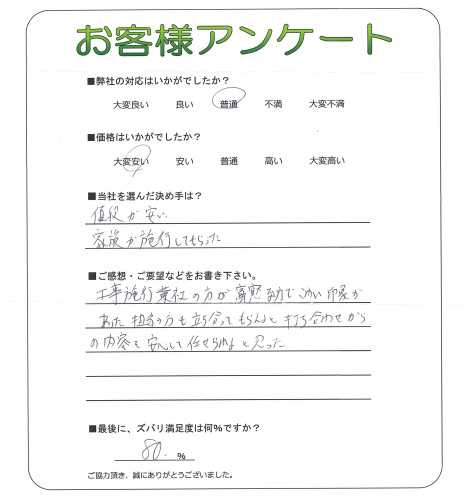 お客様アンケート
■弊社の対応はいかがでしたか？
大変良い 良い 普通 不満 大変不満
■価格はいかがでしたか？
大変安い 安い 普通 高い 大変高い
■当社を選んだ決め手は？
値段が安い
家族が施行してもらった
■ご感想・ご要望などをお書き下さい。
工事施行業社の方が寡黙 で 印象が
あった 担当の方も立ち合ってもらえると打ち合わせから
の内容も安心して任せられると思った
■最後に、ズバリ満足度は何%ですか？
80. %
ご協力頂き、誠にありがとうございました。